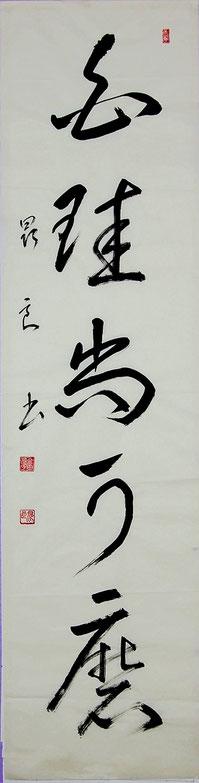 白珪尚可磨
良書